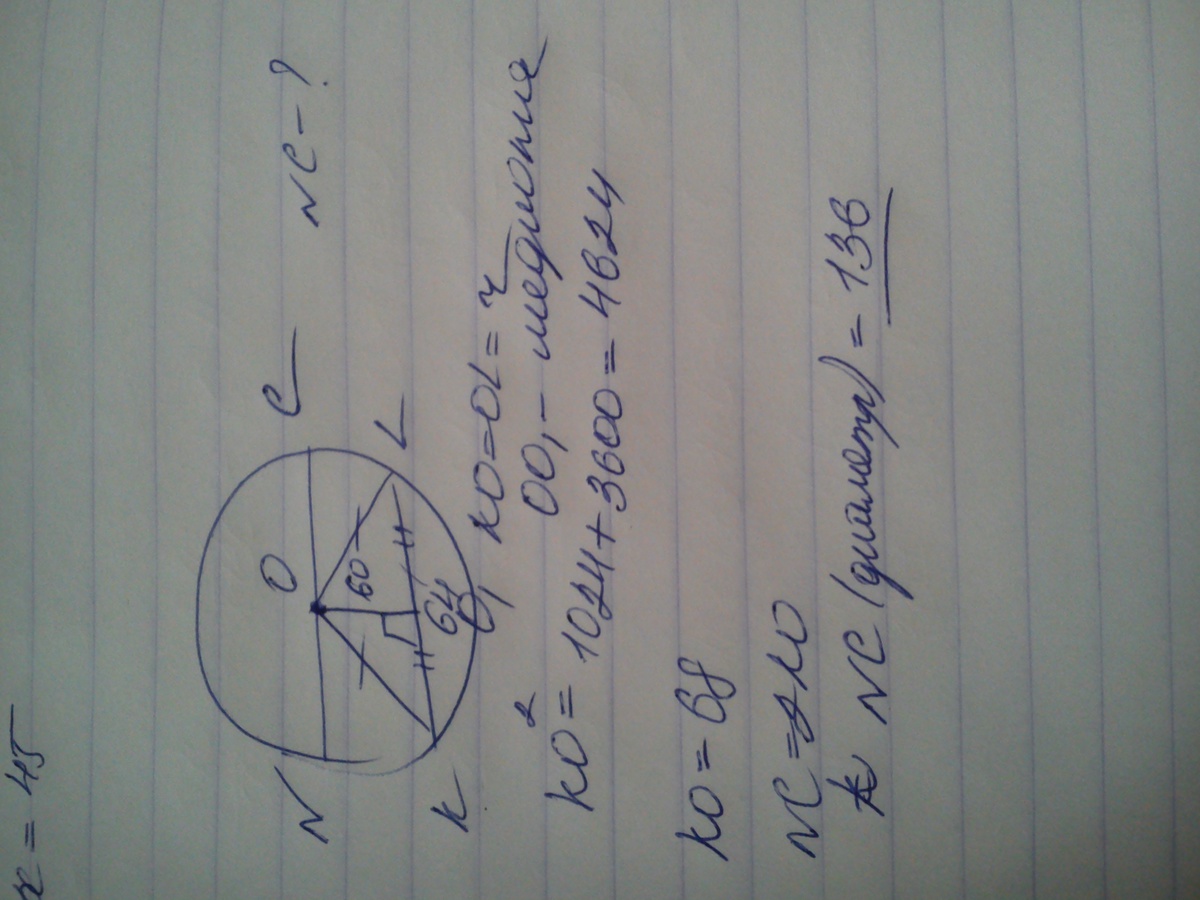 x = 45
N
O
C
NC - ?
60
K
64
O₁
L
KO=OL=r
OO₁ - медиана
KO² = 1024+3600=4624
KO = 68
NC (диаметр) = 136